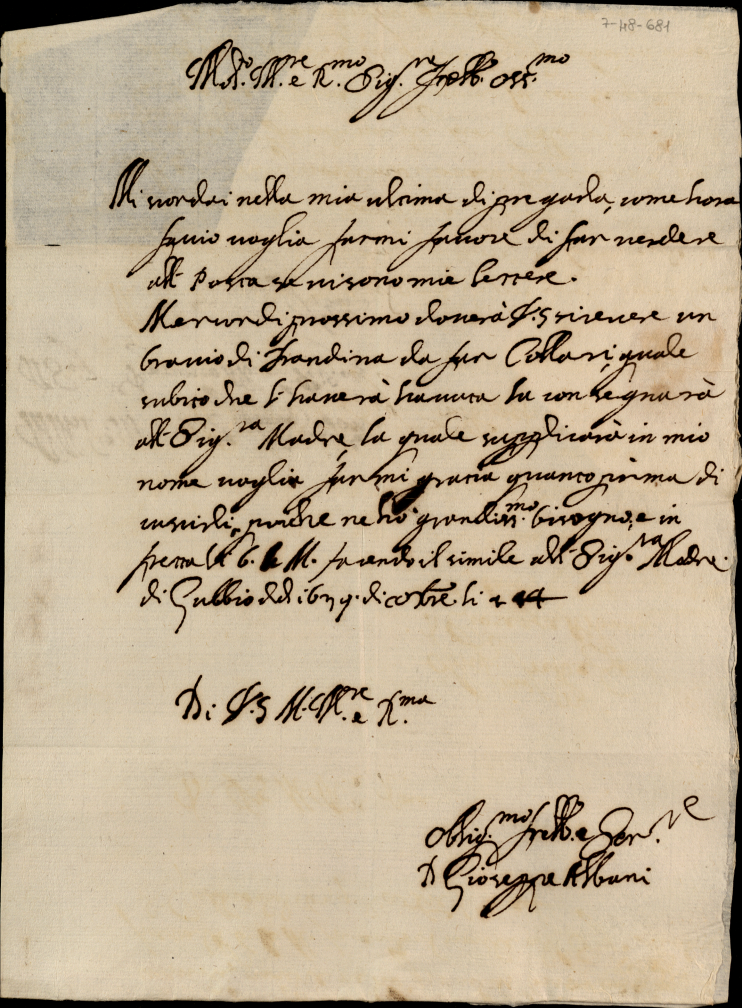 7-48-681
Mol.to Ill.re e R.mo Sig.re Fratello oss.mo
Mi scordai nella mia ultima di pregarla, come hora
faccio voglia farmi favore di far vedere
alla Posta se vi sono mie lettere.
Mercordi prossimo doverà V.S. ricevere un
braccio di Frandina da far Collari, quale
subito che l'haverà havuta la consegnarà
alla Sig.ra Madre, la quale supplicarà in mio
nome voglia farmi gratia quanto prima di
cusirli, poiche ne hò grandiss.mo bisogno, e in
fretta li b. le M. facendo il simile alla Sig.ra Madre.
di Gubbio di ottobre li
Di V.S. M. Ill.re e R.ma
Oblig.mo fratello e Ser.re
D Gioseppe Albani